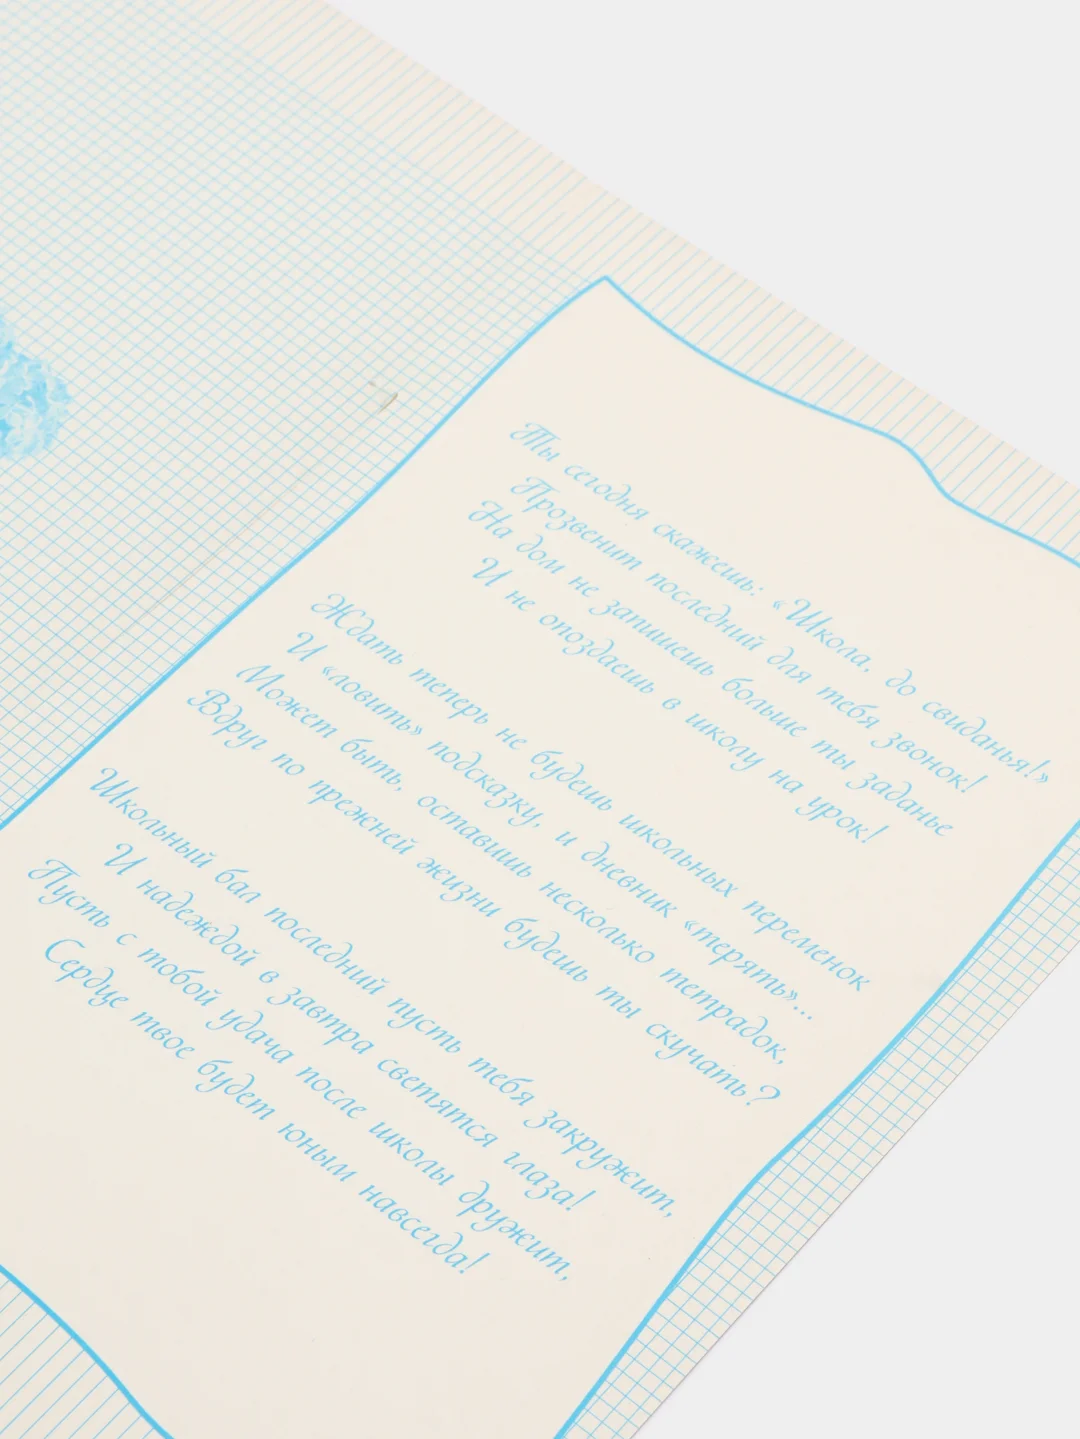 Ты сегодня скажешь: «Школа, до свиданья!»
Прозвенит последний для тебя звонок!
На дом не запишешь больше ты заданье
И не опоздаешь в школу на урок!
Ждать теперь не будешь школьных переменок
И «ловить» подсказку, и дневник «терять»...
Может быть, оставишь несколько тетрадок,
Вдруг по прежней жизни будешь ты скучать?
Школьный бал последний пусть тебя закружит,
И надеждой в завтра светятся глаза!
Пусть с тобой удача после школы дружит,
Сердце твое будет юным навсегда!